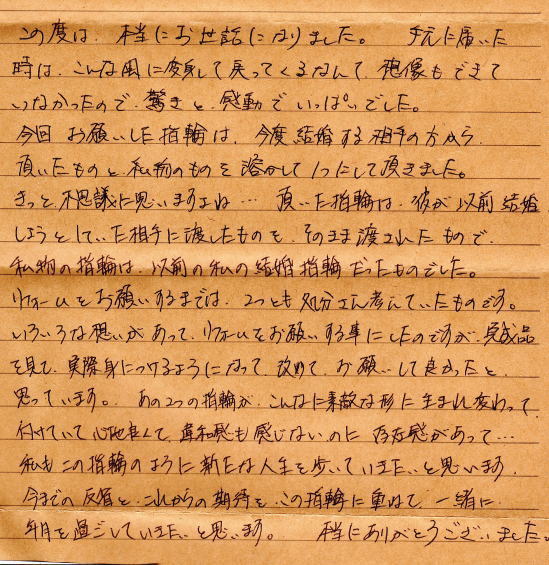 この度は、本当にお世話になりました。 手元に届いた
時は、こんな風に変身して戻ってくるなんて、想像もできて
いなかったので、驚きと、感動でいっぱいでした。
今回 お願いした指輪は、今度結婚する相手の方から
頂いたものと、私物のものを溶かして1つにして頂きました。
きっと不思議に思いますよね… 頂いた指輪は、彼が以前結婚
しようとしていた相手に渡したものを、そのまま渡されたもので、
私物の指輪は、以前の私の結婚指輪だったものでした。
リフォームをお願いするまでは、2つとも処分さえ考えていたものです。
いろいろな想いがあって、リフォームをお願いする事にしたのですが、完成品
を見て、実際身につけるようになって、改めて、お願いして良かったと
思っています。 あの2つの指輪が、こんなに素敵な形に生まれ変わって、
付けていて心地良くて、違和感も感じないのに存在感があって…
私もこの指輪のように新たな人生を歩いていきたいと思います。
今までの反省と、これからの期待を、この指輪に重ねて、一緒に
年月を過ごしていきたいと思います。 本当にありがとうございました。